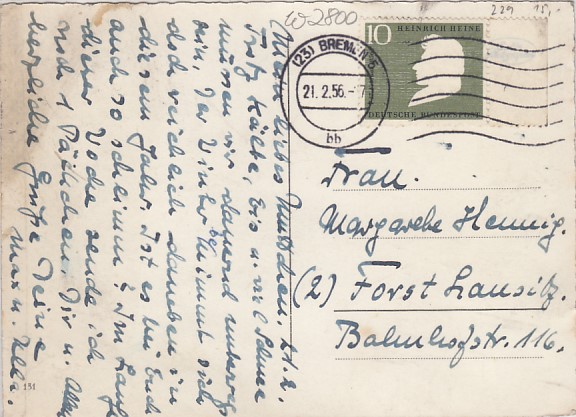 W-2800
229 15,-
10
HEINRICH HEINE
DEUTSCHE BUNDESPOST
(23) BREMEN 5
21. 2. 56.-17
bb
Frau.
Margarete Hennig.
(2) Forst Lausitz.
Bahnhofstr. 116.
Mein liebes Muttchen. 21.2.
Trotz Kälte, Eis u. viel Schnee
müssen wir dauernd unterwegs
sein. Der Winter benimmt sich
doch reichlich daneben in
diesem Jahr. Ist es bei Euch
auch so schlimm? Im Laufe
dieser Woche sende ich
noch 1 Päckchen. Dir u. Allen
herzliche Grüße Deine
Max u.
131